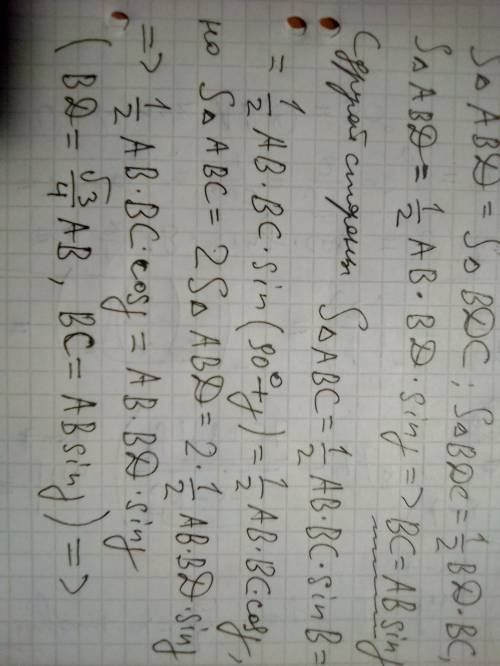 S△ABD = S△BDC; S△BDC = 1/2 BD·BC,
S△ABD = 1/2 AB·BD·sin y => BC = AB sin y
С другой стороны S△ABC = 1/2 AB·BC·sin B =
= 1/2 AB·BC·sin(90°+y) = 1/2 AB·BC·cos y,
но S△ABC = 2S△ABD = 2·1/2 AB·BD·sin y
=> 1/2 AB·BC·cos y = AB·BD·sin y
(BD = √3/4 AB, BC = AB sin y) =>